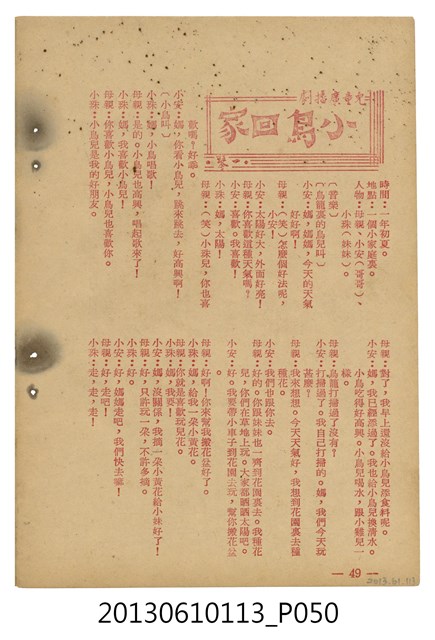 兒童廣播劇
小鳥回家
時間：一年初夏。
地點：一個小家庭裏。
人物：母親、小安（哥哥）、
小珠（妹妹）。
〔音樂〕
〔鳥籠裏的鳥兒叫〕
小安：媽，媽媽，今天的天氣
好好啊！
母親：（笑）怎麼個好法呢，
小安！
小安：太陽好大，外面好亮！
母親：你喜歡這種天氣嗎？
小安：喜歡。我喜歡！
小珠：媽，太陽！
母親：（笑）小珠兒，你也喜
歡嗎？好乖。
小安：媽，你看小鳥兒，跳來跳去，好高興啊！
〔小鳥叫〕
小珠：媽，小鳥唱歌！
母親：是的。小鳥兒也高興，唱起歌來了！
小珠：媽，我喜歡小鳥兒！
母親：你喜歡小鳥兒，小鳥兒也喜歡你。
小珠：小鳥兒是我的好朋友。
母親：對了，我早上還沒給小鳥兒添食料呢。
小安：媽，我已經添過了。我也給小鳥兒換清水。
小鳥吃得好高興。小鳥兒喝水，跟小雞兒一
樣。
母親：鳥籠打掃過了沒有？
小安：打掃過了。我自己打掃的。媽，我們今天玩
甚麼？
母親：我來想想。今天天氣好，我想到花園裏去種
種花。
小安：我們也跟你去。
母親：好的。你跟妹妹也一齊到花園裏去。我種花
兒，你們在草地上玩。大家都晒晒太陽吧。
小安：好。我要帶小車子到花園去玩，幫你搬花盆
。
母親：好啊！你來幫我搬花盆好了。
小珠：媽，給我一朵小黃花。
母親：你就是喜歡玩兒花。
小珠：媽，我要！
小安：媽，沒關係，我摘一朵小黃花給小妹好了！
母親：好，只許玩一朵，不許多摘。
小珠：好。
小安：好，媽媽走吧，我們快去嘛！
母親：好，走吧！
小珠：走，走，走！
— 49 —
2013.61.113
20130610113_P050